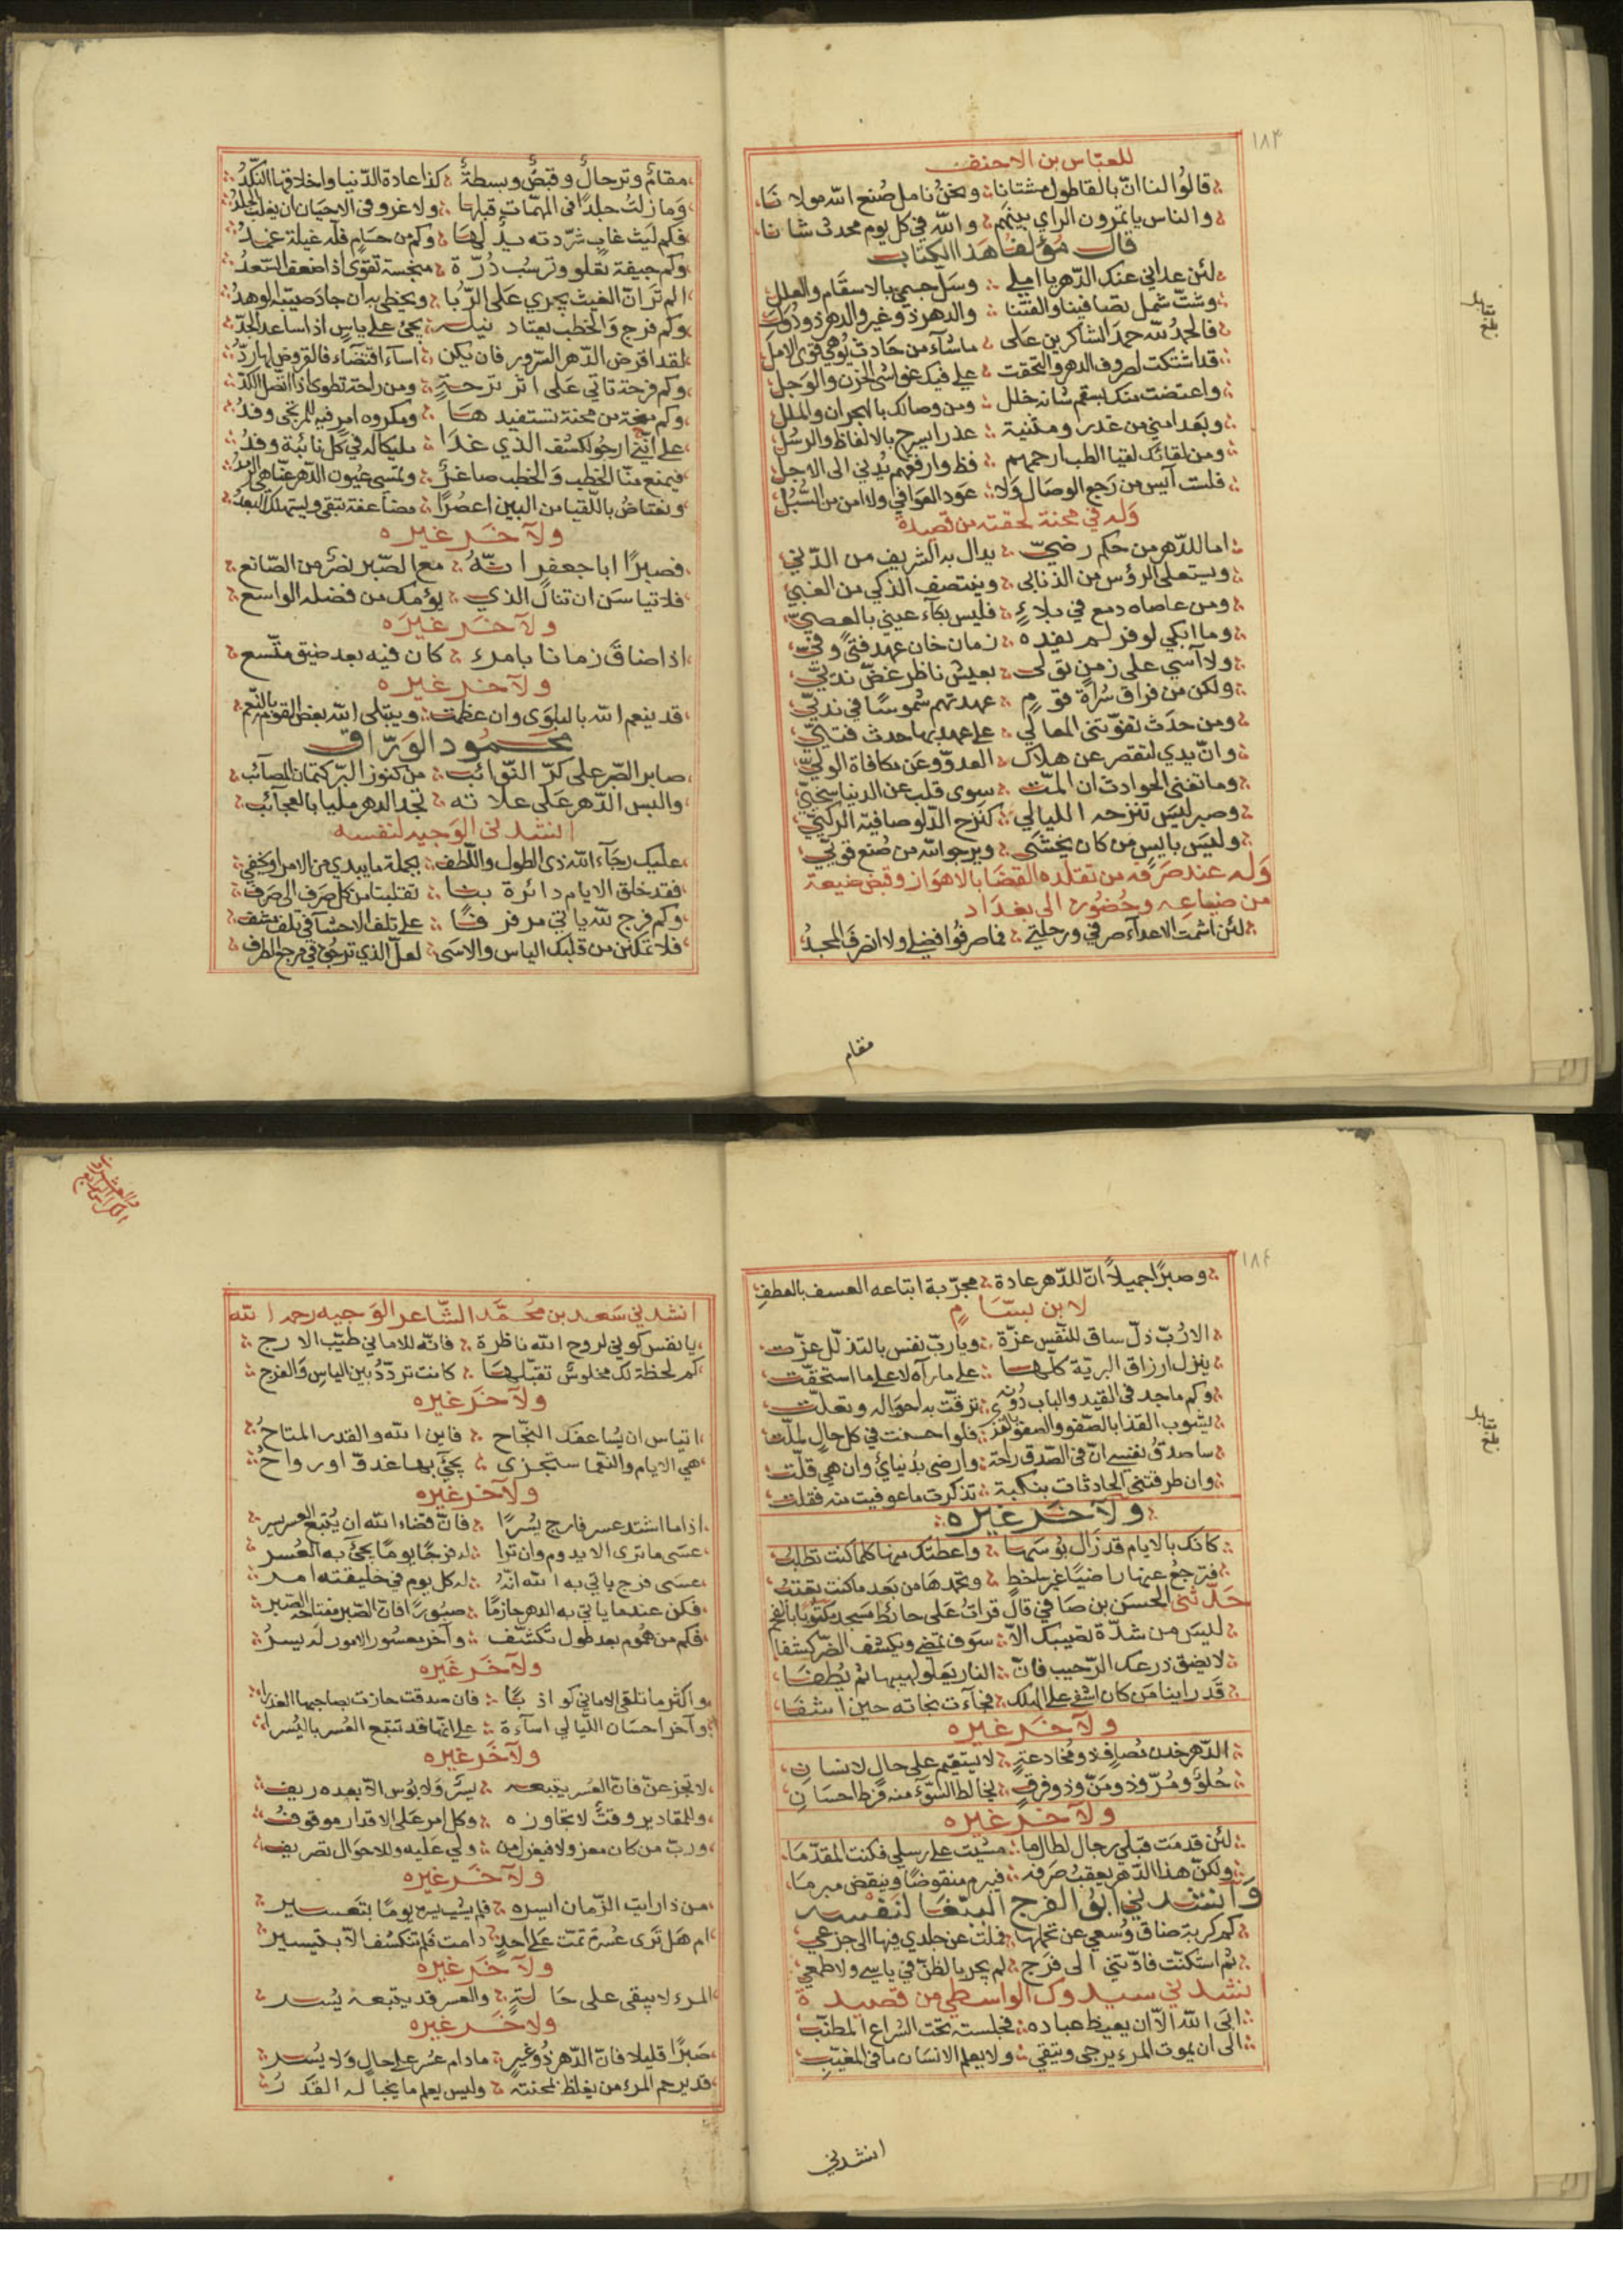 ١٨٣
للعباس بن الاحنف
قالوا لنا ان بالقاطول مشتانا ونحن نامل صنع الله مولانا
والناس ياتمرون الراي بينهم والله في كل يوم محدث شانا
قال مؤلف هذا الكتاب
لئن عداني عنك الدهر يا املي وسل جسمي بالاسقام والعلل
وشت شمل تصافينا والفتنا والدهر ذو غير والدهر ذو دول
فالحمد لله حمد الشاكرين على ما ساء من حادث يوهي قوى الامل
قد اشتكت لصروف الدهر والتحقت علي فيك غواشي الحزن والوجل
واعتضت منك بسقم شانه خلل ومن وصالك بالهجران والملل
وبعد امني من غدر ومثنية عذرا يسرح بالالفاظ والرسل
ومن لقائك لقيا الطب ارحمهم فظ وارفقهم يدني الى الاجل
فلست آيس من رجع الوصال ولا عود العوافي ولا امن من السبل
وله في محنة لحقته من قصيدة
اما للدهر من حكم رضي يدال به الشريف من الدني
ويستعلى الرؤس من الذنابى وينتصف الذكي من الغبي
ومن عاصاه دمع في بلاء فليس بكاء عيني بالعصي
وما ابكي لوفر لم يفده زمان خان عهد فتى وفي
ولا آسي على زمن تولى بعيش ناظر غض ندي
ولكن من فراق سراة قوم عهدتهم شموسا في ندي
ومن حدث تفوتني المعالي على عهدي بها حدث فتي
وان يدي لتقصر عن هلاك العدو وعن مكافاة الولي
وما تغني الحوادث ان المت سوى قلب عن الدنيا سخي
وصبر ليس تنزحه الليالي كنزح الدلو صافية الركي
وليس بايس من كان يخشى ويرجو الله من صنع قوي
وله عند صرفه من تقلده القضا بالاهواز وقبض ضيعة
من ضياعه وحضوره الى بغداد
لئن اشمت الاعداء صرفي ورحلتي فما صرفوا فضلي ولا انصرف المجد
مقام
مقام وترحال وقبض وبسطة كذا عادة الدنيا واخلاقها النكد
وما زلت جلدا فى الملمات قبلها ولا غرو فى الاحيان ان يغلب الجلد
فكم ليث غاب شردته يد لها وكم من حسام فله غيلة غمد
وكم جيفة تعلو وترسب درة منحسة تقوى اذا ضعف السعد
الم تر ان الغيث يجري على الربا ويحظى به ان جاد صيبه الوهد
وكم فرج والخطب يعتاد نيله يجئ على ياس اذا ساعد الجد
لقد اقرض الدهر السرور فان يكن اساء اقتضاء فالقروض لها رد
وكم فرحة تاتي على اثر ترحة ومن راحة تطوى اذا اتصل الكد
وكم منحة من محنة تستفيدها ومكروه امر فيه للمرتجى وفد
على انني ارجو لكشف الذي غدا مليكا له في كل نائبة وفد
فيمنع منا الخطب والخطب صاغر وتمسي عيون الدهر عنا هي الرمد
ونعتاض باللقيا من البين اعصرا مضاعفة تبقى ويستهلك البعد
ولآخر غيره
فصبرا ابا جعفر انه مع الصبر نصر من الصانع
فلا تياسن ان تنال الذي يؤمك من فضله الواسع
ولآخر غيره
اذا ضاق زمانا بامرء كان فيه بعد ضيق متسع
ولآخر غيره
قد ينعم الله بالبلوى وان عظمت ويبتلى الله بعض القوم بالنعم
محمود الوراق
صابر الصبر على كر النوائب من كنوز البر كتمان المصائب
والبس الدهر على علاته تجد الدهر مليا بالعجائب
انشدنى الوجيه لنفسه
عليك رجاء الله ذى الطول واللطف بجملة ما يبدي من الامر او يخفي
فقد خلق الايام دائرة بنا تقلبنا من كل صرف الى صرف
وكم فرج لله ياتي مرفرفا على تلف الاحشا في تلف مشف
فلا تمكنن من قلبك الياس والاسى لعل الذي ترجوه في مرجع الطرف
١٨٤
وصبرا جميلا ان للدهر عادة مجربة اتباعه العسف بالعطف
لابن بسام
الا رب ذل ساق للنفس عزة ويا رب نفس بالتذلل عزت
ينزل ارزاق البرية كلها على ما رآه لا على ما استحقت
وكم ماجد فى القيد والباب دونه ترقت به احواله وتعلت
يشوب القذا بالصفو والصفو بالقذى فلو احسنت في كل حال لملت
ساصدق نفسي ان فى الصدق راحة وارضى بدنيائي وان هي قلت
وان طرقتني الحادثات بنكبة تذكرت ما عوفيت منه فقلت
ولآخر غيره
كانك بالايام قد زال بوسها واعطتك منها كلما كنت تطلب
فترجع عنها راضيا غير ساخط وتحمدها من بعد ما كنت تعتب
حدثني الحسن بن صافي قال قرات على حائط مسجد مكتوبا بالفحم
ليس من شدة تصيبك الا سوف تمضي ويكشف الضر كشفا
لا يضق ذرعك الرحيب فان النار يعلو لهيبها ثم يطفا
قد راينا من كان اشفى على الهلك فجاءت نجاته حين اشفا
ولآخر غيره
الدهر خدن مصافى ومخادعة لا يستقيم على حال لانسان
حلو ومر وذو من وذو فرق يخالط السوء منه فرط احسان
ولآخر غيره
لئن قدمت قبلي رجال لطالما مشيت على رسلي فكنت المقدما
ولكن هذا الدهر يعقب صرفه فيبرم منقوضا وينقض مبرما
وانشدني ابو الفرج الببغا لنفسه
كم كربة ضاق وسعي عن تحملها فملت عن جلدي فيها الى جزعي
ثم استكنت فادتني الى فرج لم يجر بالظن في ياسي ولا طمعي
انشدني سيدوك الواسطي من قصيدة
ابى الله الا ان يغيظ عباده فجلسته تحت الشراع المطنب
الى ان يموت المرء يرجى ويتقي ولا يعلم الانسان ما فى المغيب
انشدني
انشدني سعد بن محمد الشاعر الوجيه رحمه الله
يا نفس كوني لروح الله ناظرة فانه للاماني طيب الارج
كم لحظة لك مخلوس تقبلها كانت تردد بين الياس والفرج
ولآخر غيره
اتياس ان يساعفك النجاح فاين الله والقدر المتاح
هي الايام والنعما ستجزى يجئ بها غدو او رواح
ولآخر غيره
اذا ما اشتد عسر فارج يسرا فان قضاء الله ان يتبع العسر يسر
عسى ما ترى الا يدوم وان ترا له فرجا يوما يجئ به العسر
عسى فرج ياتي به الله انه له كل يوم في خليقته امر
فكن عندما ياتي به الدهر حازما صبورا فان الصبر مفتاحه الصبر
فكم من هموم بعد طول تكشف وآخر معسور الامور له يسر
ولآخر غيره
واكثر ما تلقى الاماني كواذبا فان صدقت حازت بصاحبها القدرا
وآخر احسان الليالي اساءة على انها قد تتبع العسر باليسرا
ولآخر غيره
لا تجزعن فان العسر يتبعه يسر ولا بوس الا بعده ريف
وللمقادير وقت لا تجاوزه وكل امر على الاقدار موقوف
ورب من كان معزولا فيعزل من ولي عليه وللاحوال تصريف
ولآخر غيره
من ذا رايت الزمان ايسره فلم يشب يسره يوما بتعسير
ام هل ترى عسرة تمت على احد دامت فلم تنكشف الا بتيسير
ولآخر غيره
المرء لا يبقى على حالة والعسر قد يتبعه يسر
ولآخر غيره
صبرا قليلا فان الدهر ذو غير ما دام عسر على حال ولا يسر
قد يرحم المرء من يغلظ لمحنته وليس يعلم ما يخبا له القدر